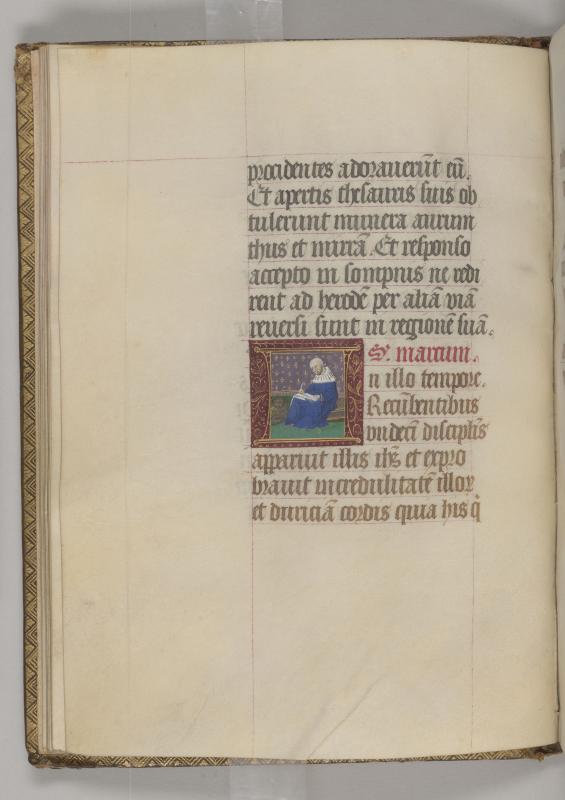 procidentes adorauerūt eū.
Et apertis thesauris suis ob
tulerunt munera aurum
thus et mirrā. Et responso
accepto in sompnis ne redi
rent ad herodē per aliā viā
reuersi sunt in regionē suā.
S'. marcum.
In illo tempore.
Recūbentibus
vndecī disciplīs
apparuit illis ihs̄ et expro
brauit incredulitatē illoꝝ
et duriciā cordis quia his q̇